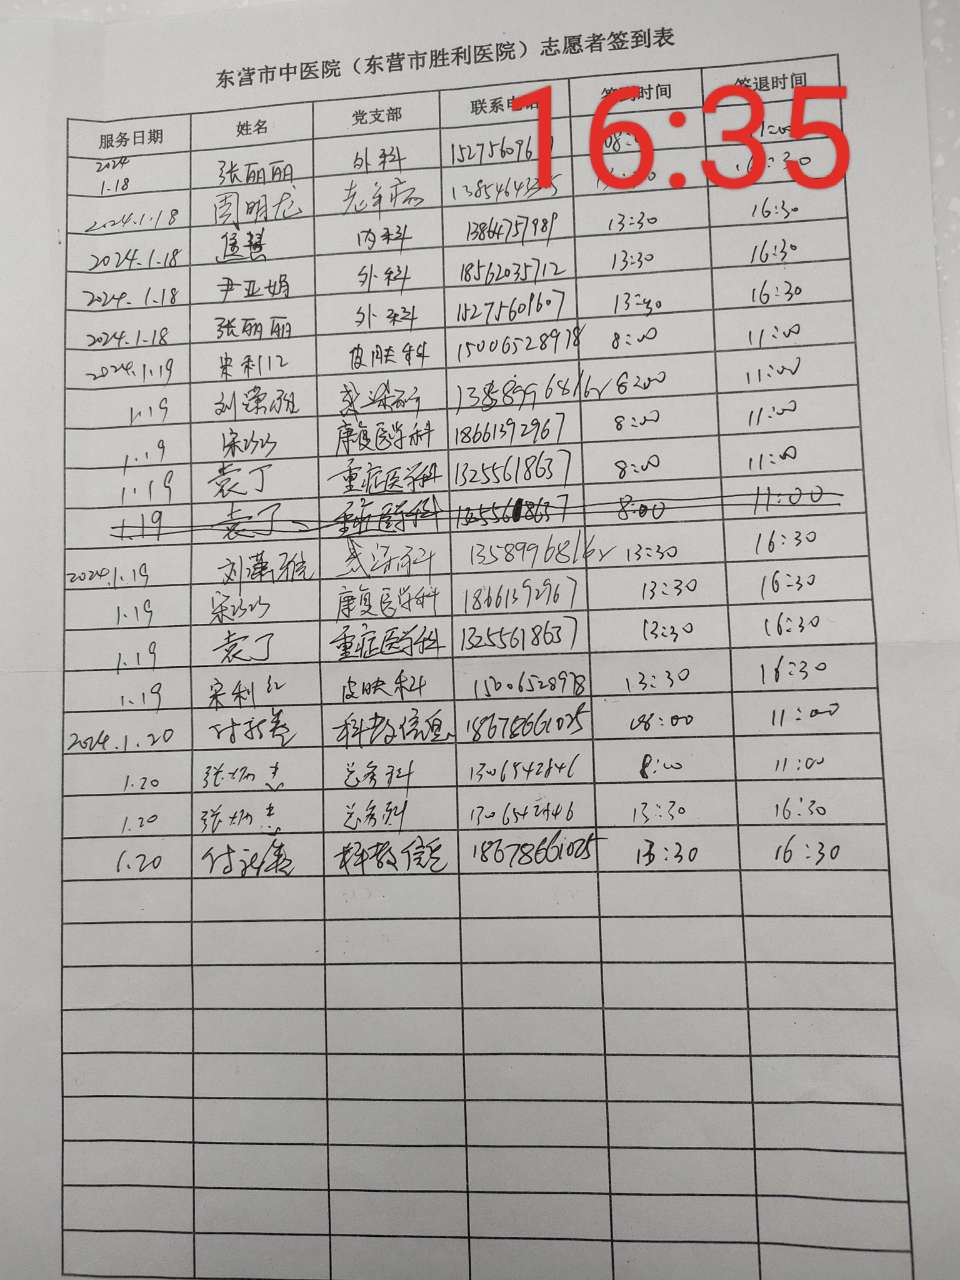 东营市中医院（东营市胜利医院）志愿者签到表
服务日期 姓名 党支部 联系电话 签到时间 签退时间
16:35
2024 1.18 张丽丽 外科
2024.1.18 周明龙 老年病 16:30
2024.1.18 内科 13864757989 13:30 16:30
2024.1.18 尹亚娟 外科 18562035712 13:30 16:30
2024.1.18 张丽丽 外科 15275601607 13:30 16:30
2024.1.19 宋利红 皮肤科 15006528978 8:00 11:00
1.19 8:00 11:00
1.19 康复医学科 18661392967 8:00 11:00
1.19 袁丁 重症医学科 13255618637 8:00 11:00
1.19 袁丁 重症医学科 13255618637 8:00 11:00
2024.1.19 13:30 16:30
1.19 康复医学科 18661392967 13:30 16:30
1.19 袁丁 重症医学科 13255618637 13:30 16:30
1.19 宋利红 皮肤科 15006528978 13:30 16:30
2024.1.20 科教信息 18678661025 08:00 11:00
1.20 总务科 8:00 11:00
1.20 总务科 13:30 16:30
1.20 科教信息 18678661025 13:30 16:30